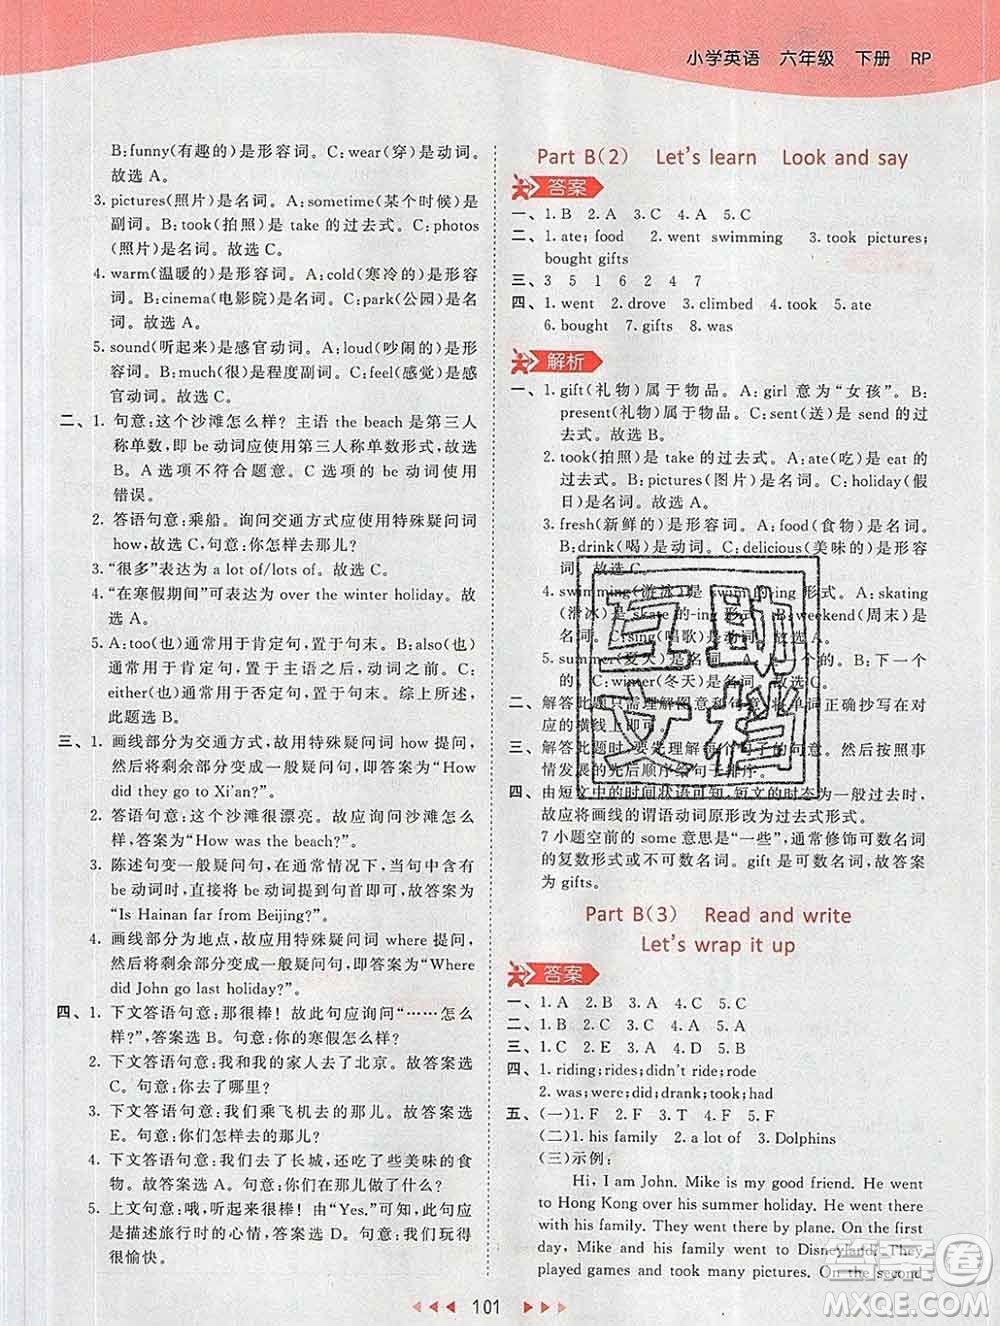 小学英语 六年级 下册 RP
B:funny(有趣的)是形容词。C:wear(穿)是动词。
故选 A。
3. pictures(照片)是名词。A:sometime(某个时候)是
副词。B:took(拍照)是 take 的过去式。C:photos
(照片)是名词。故选 C。
4. warm(温暖的)是形容词。A:cold(寒冷的)是形容
词。B:cinema(电影院)是名词。C:park(公园)是名
词。故选 A。
5. sound(听起来)是感官动词。A:loud(吵闹的)是形
容词。B:much(很)是程度副词。C:feel(感觉)是感
官动词。故选 C。
二、1. 句意:这个沙滩怎么样? 主语 the beach 是第三人
称单数,即 be 动词应使用第三人称单数形式,故选
B。A 选项不符合题意。C 选项的 be 动词使用
错误。
2. 答语句意:乘船。询问交通方式应使用特殊疑问词
how,故选 C。句意:你怎样去那儿?
3. “很多”表达为 a lot of/lots of。
4. “在寒假期间”可表达为 over the winter holiday。
故选 C。
5. A:too(也)通常用于肯定句,置于句末。B:also(也)
通常用于肯定句,置于主语之后,动词之前。C:
either(也)通常用于否定句,置于句末。综上所述,
此题选 B。
三、1. 画线部分为交通方式,故用特殊疑问词 how 提问,
然后将剩余部分变成一般疑问句,即答案为“How
did they go to Xi’an?”
2. 答语句意:这个沙滩很漂亮。故应询问沙滩怎么
样,答案为“How was the beach?”
3. 陈述句变一般疑问句,在通常情况下,当句中含有
be 动词时,直接将 be 动词提到句首即可,故答案为
“Is Hainan far from Beijing?”
4. 画线部分为地点,故应用特殊疑问词 where 提问,
然后将剩余部分变成一般疑问句,即答案为“Where
did John go last holiday?”
四、1. 下文答语句意:那很棒! 故此句应询问“……怎么
样?”,答案选 B。句意:你的寒假怎么样?
2. 下文答语句意:我和我的家人去了北京。故答案选
C。句意:你去了哪里?
3. 下文答语句意:我们乘飞机去的那儿。故答案选
E。句意:你们怎样去的那儿?
4. 下文答语句意:我们去了长城,还吃了些美味的食
物。故答案选 A。句意:你们做了什么?
5. 上文句意:哦,听起来很棒! 由“Yes.”可知,此句应
是描述旅行时的心情,答案选 D。句意:我们玩得
很愉快。
Part B(2) Let’s learn Look and say
答案
一、1. B 2. A 3. C 4. A 5. C
二、1. ate; food 2. went swimming 3. took pictures;
bought gifts
三、3 5 1 6 2 4 7
四、1. went 2. drove 3. climbed 4. took 5. ate
6. bought 7. gifts 8. was
解析
一、1. gift(礼物)属于物品。A:girl 意为“女孩”。B:
present(礼物)属于物品。C:sent(送)是 send 的过
去式。故选 B。
2. took(拍照)是 take 的过去式。A:ate(吃)是 eat 的
过去式。B:pictures(图片)是名词。C:holiday(假
日)是名词。故选 A。
3. fresh(新鲜的)是形容词。A:food(食物)是名词。
B:drink(喝)是动词。C:delicious(美味的)是形容
词。故选 C。
4. swimming(游泳)是 swim 的-ing 形式。A:skating
(滑冰)是 skate 的-ing 形式。B:weekend(周末)是
名词。C:sing(唱歌)是动词。故选 A。
5. summer(夏天)是 A: 个的。B:
的。C:winter(冬天)是 故选 C。
二、解答此题只需理解图意和句意,将单词正确抄写在对
应的横线上即可。
三、解答此题时,要先理解每个句子的句意。然后按照事
情发展的先后顺序给句子排序。
四、由短文中的时间状语可知,短文的时态为一般过去时,
故应将画线的谓语动词原形改为过去式形式。
7 小题空前的 some 意思是“一些”,通常修饰可数名词
的复数形式或不可数名词。gift 是可数名词,故答案
为 gifts。
Part B(3) Read and write
Let’s wrap it up
答案
一、1. A 2. B 3. A 4. C 5. C
二、1. C 2. A 3. B 4. A 5. C
三、1. C 2. E 3. A 4. D 5. B
四、1. riding; rides; didn’t ride; rode
2. was; were; did; drank; took; had
五、(一)1. F 2. F 3. T 4. F 5. F
(二)1. his family 2. a lot of 3. Dolphins
(三)示例:
Hi, I am John. Mike is my good friend. He went
to Hong Kong over his summer holiday. He went there
with his family. They went there by plane. On the first
day, Mike and his family went to Disneyland. They
played games and took many pictures. On the second
互助文档
答案卷
MXQE.COM
101